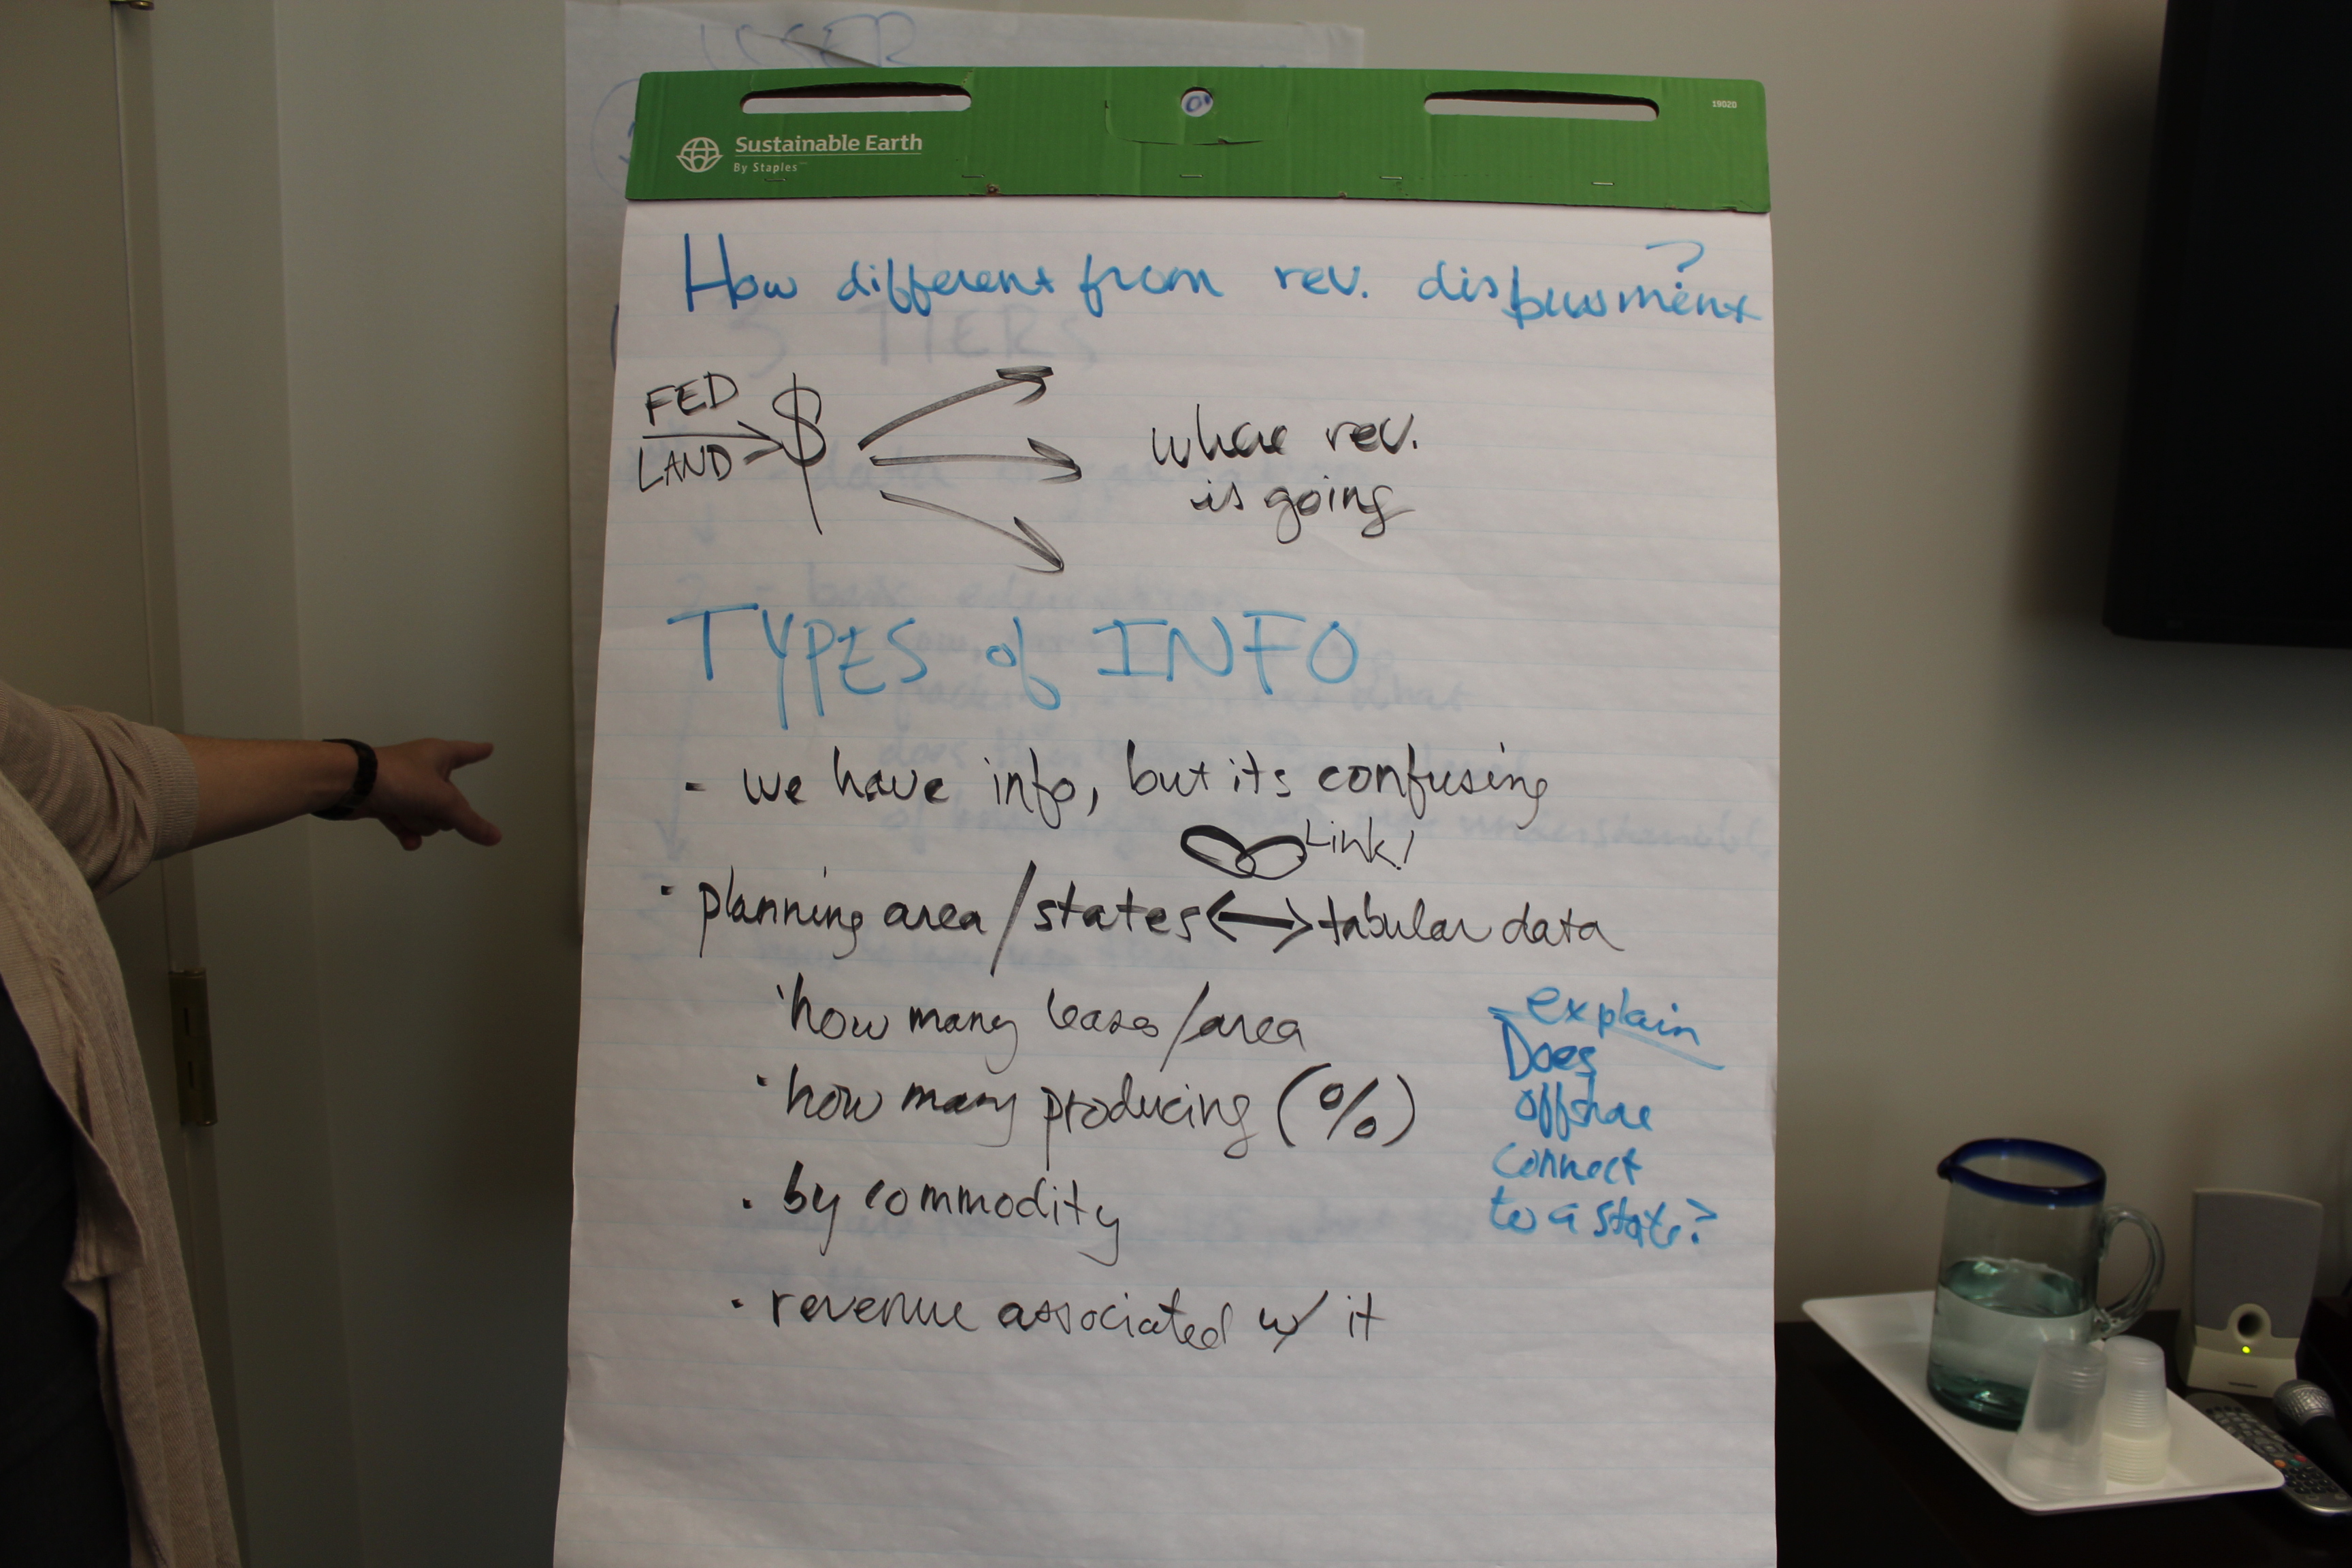 USER
19020
Sustainable Earth
By Staples
How different from rev. disbursment?
3 TIERS
FED
LAND
$
where rev.
is going
TYPES of INFO
- we have info, but its confusing
Link!
· planning area/states ↔ tabular data
· how many leases/area
· how many producing (%)
· by commodity
· revenue associated w/ it
explain
Does
offshore
connect
to a state?